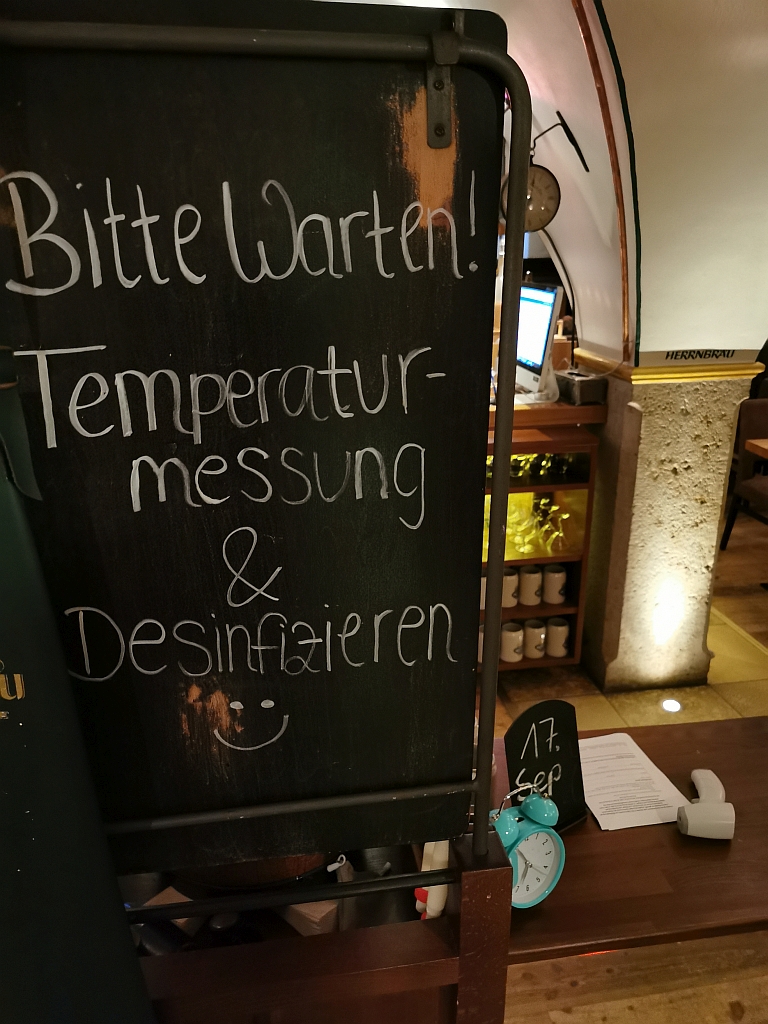 Bitte Warten!
Temperatur-
messung
&
Desinfizieren
HERRNBRÄU
17.
Sep